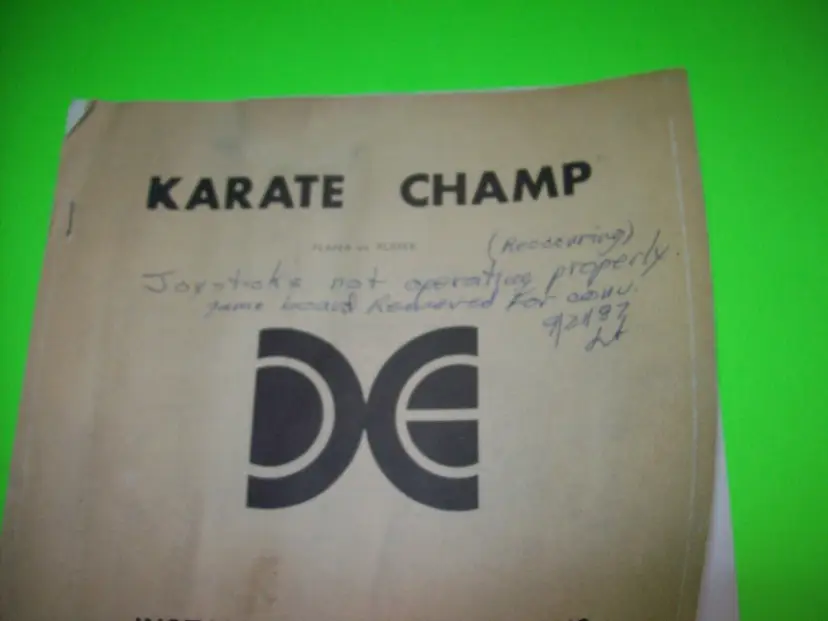 KARATE CHAMP
PLAYER vs PLAYER
(Reoccuring)
Joysticks not operating properly.
game board Removed For
DE